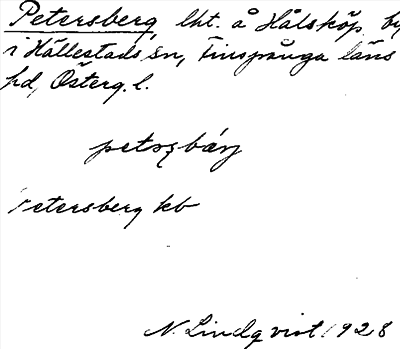 Petersberg, lht. å Hålsköp, by
i Hällestads sn, Finspånga läns
hd, Österg. l.
petaʂbärj
Petersberg kb
N. Lindqvist 1928